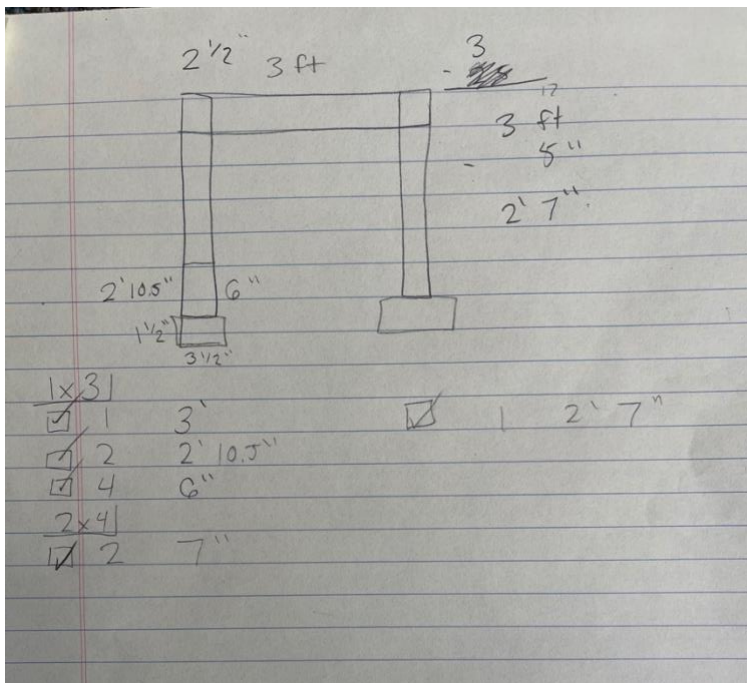 2 1/2" 3 ft
3
-
12
3 ft
- 5"
2' 7"
2' 10.5" 6"
1 1/2"
3 1/2"
1x3
1 3'
2 2' 10.5"
4 6"
2x4
2 7"
1 2' 7"